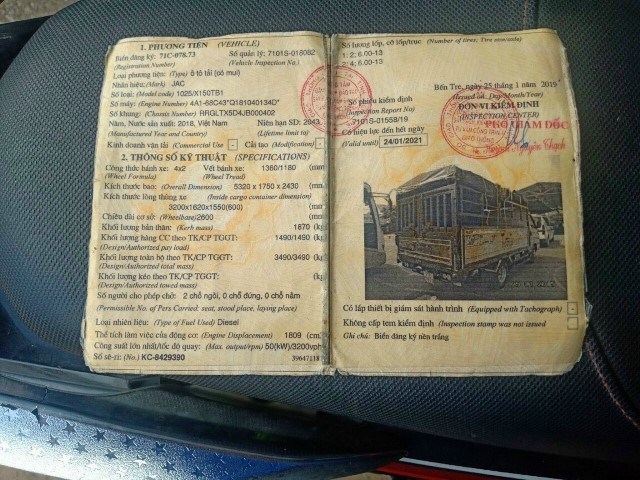 1. PHƯƠNG TIỆN (VEHICLE)
Biển đăng ký: 71C-078.73 Số quản lý: 7101S-018082
(Registration Number) (Vehicle Inspection No.)
Loại phương tiện: (Type) ô tô tải (có mui)
Nhãn hiệu: (Mark) JAC
Số loại: (Model code) 1025/X150TB1
Số máy: (Engine Number) 4A1-68C43*Q181040134D*
Số khung: (Chassis Number) RRGLTX5D4JB000402
Năm, Nước sản xuất: 2018, Việt Nam Niên hạn SD: 2043
(Manufactured Year and Country) (Lifetime limit to)
Kinh doanh vận tải (Commercial Use) - Cải tạo (Modification) -
2. THÔNG SỐ KỸ THUẬT (SPECIFICATIONS)
Công thức bánh xe: 4x2 Vết bánh xe: 1360/1180 (mm
(Wheel Formula) (Wheel Tread)
Kích thước bao: (Overall Dimension) 5320 x 1750 x 2430 (mm
Kích thước lòng thùng xe (Inside cargo container dimension)
3200x1620x1550(600) (mm
Chiều dài cơ sở: (Wheelbase) 2600 (mm
Khối lượng bản thân: (Kerb mass) 1870 (kg
Khối lượng hàng CC theo TK/CP TGGT: 1490/1490 (kg
(Design/Authorized pay load)
Khối lượng toàn bộ theo TK/CP TGGT: 3490/3490 (kg
(Design/Authorized total mass)
Khối lượng kéo theo TK/CP TGGT: (kg
(Design/Authorized towed mass)
Số người cho phép chở: 2 chỗ ngồi, 0 chỗ đứng, 0 chỗ nằm
(Permissible No. of Pers Carried: seat, stood place, laying place)
Loại nhiên liệu: (Type of Fuel Used) Diesel
Thể tích làm việc của động cơ: (Engine Displacement) 1809 (cm
Công suất lớn nhất/tốc độ quay: (Max. output/rpm) 50(kW)/3200vph
Số sê-ri: (No.) KC-8429390 39647118
Số lượng lốp, cỡ lốp/trục (Number of tires; Tire size/axle)
1: 2; 6.00-13
2: 4; 6.00-13
Bến Tre, ngày 25 tháng 1 năm 2019
(Issued on: Day/Month/Year)
Số phiếu kiểm định
(Inspection Report No)
7101S-01558/19
Có hiệu lực đến hết ngày
(Valid until) 24/01/2021
ĐƠN VỊ KIỂM ĐỊNH
(INSPECTION CENTER)
PHÓ GIÁM ĐỐC
Có lắp thiết bị giám sát hành trình (Equipped with Tachograph)
Không cấp tem kiểm định (Inspection stamp was not issued
Ghi chú: Biển đăng ký nền trắng